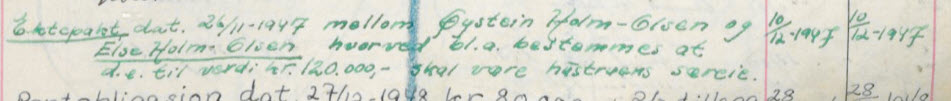 Ektepakt, dat. 26/11-1947 mellom Øystein Holm-Olsen og 10/12-1947 10/12-1947
Else Holm-Olsen hvorved bl.a. bestemmes at
d.e. til verdi kr. 120.000,- skal være hustruens særeie.
Pantobligasjon dat. 27/12-1948 kr 80 28 28